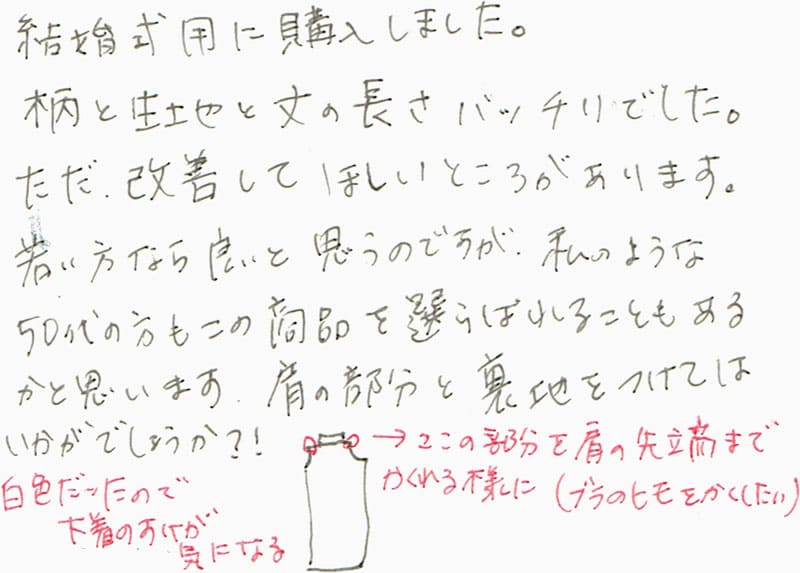 結婚式用に購入しました。
柄と生地と丈の長さバッチリでした。
ただ、改善してほしいところがあります。
若い方なら良いと思うのですが、私のような
50代の方もこの商品を選らばれることもある
かと思います。肩の部分と裏地をつけては
いかがでしょうか?!
→ ココの部分を肩の先端まで
かくれる様に (ブラのヒモをかくしたい)
白色だったので
下着のすけが
気になる